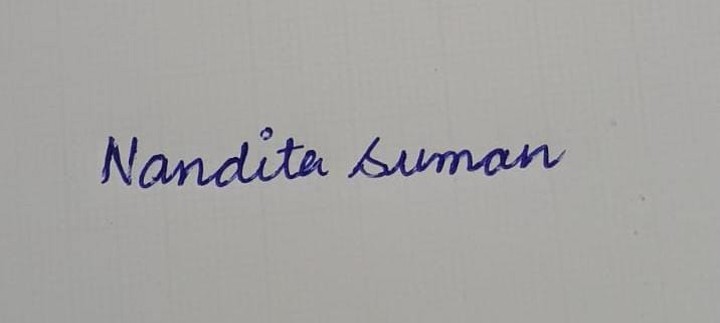 Nandita Suman